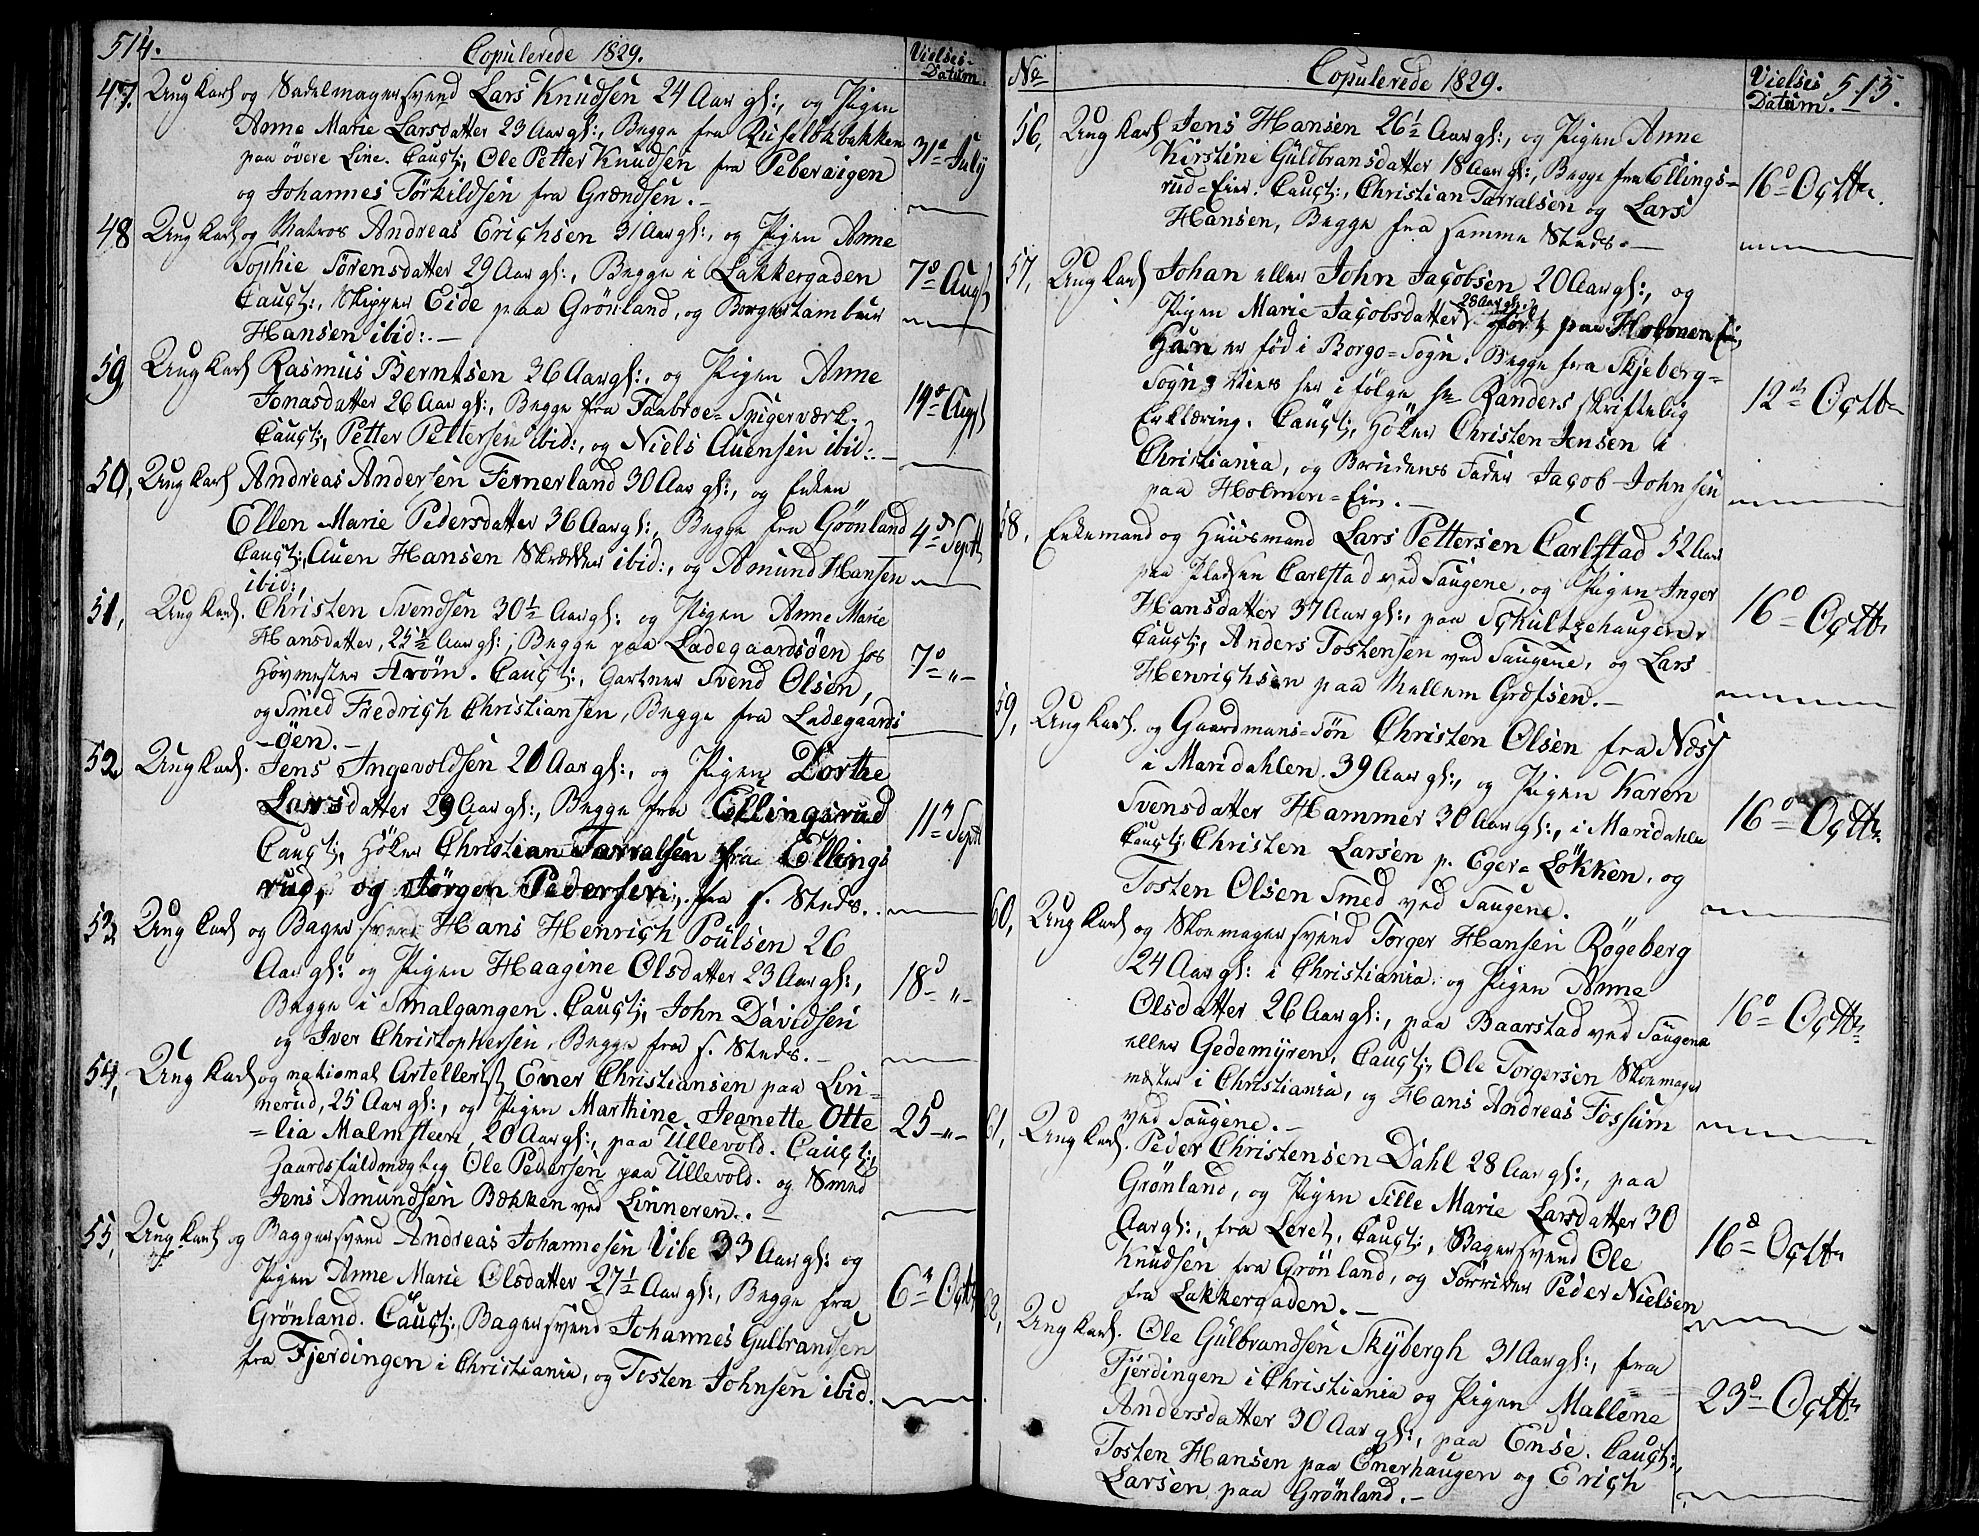 514. Copulerede 1829. Vielses-
Datum.
47. Ung Karl og Sadelmagersvend Lars Knudsen 24 Aar gl:, og Pigen
Anne Marie Larsdatter 23 Aar gl:, Begge fra Ruseløkbakken
paa övere Line. Cauçt:, Ole Petter Knudsen fra Pebervigen
og Johannes Törkildsen fra Grændsen. –
31te July
48 Ung Karl og Matros Andreas Erichsen 31 Aar gl:, og Pigen Anne
Sophie Sörensdatter 29 Aar gl:, Begge i Lakkergaden
Cauçt:, Skipper Eide paa Grönland, og Borgertambur
Hansen ibid:. –
7de Augst
59, Ung Karl Rasmus Berntsen 36 Aar gl:, og Pigen Anne
Jonasdatter 26 Aar gl:, Begge fra Taabroe-Spigerværk.
Cauçt:, Petter Pettersen ibid:, og Niels Auensen ibid:. –
14de Augst
50, Ung Karl Andreas Andersen Femerland 30 Aar gl:, og Enken
Ellen Marie Pedersdatter 36 Aar gl:, Begge fra Grönland
Cauçt:, Auen Hansen Skrædder ibid:, og Amund Hansen
ibid:,
4de Septt
51, Ung Karl. Christen Svendsen 30½ Aar gl: og Pigen Anne Marie
Hansdatter, 25½ Aar gl:, Begge paa Ladegaardsöen hos
Hovmester Ström. Cauçt:, Gartner Svend Olsen,
og Smed Fredrich Christiansen, Begge fra Ladegaards
-öen. –
7de „ –
52. Ung Karl. Jens Ingevoldsen 20 Aar gl:, og Pigen Dorthe
Larsdatter 29 Aar gl:, Begge fra Ellingsrud
Cauçt:, Höker Christian Tarralsen fra Ellings
rud, og Jörgen Pedersen, fra s. Steds.
11te Septt
53 Ung Karl og Bagersvend Hans Henrich Poulsen 26
Aar gl: og Pigen Haagine Olsdatter 23 Aar gl:,
Begge i Smalgangen. Cauçt:, John Davidsen
og Iver Christophersen, Begge fra s. Steds. –
18de „ –
54, Ung Karl og national Artellerist Ener Christiansen paa Lin-
nerud, 25 Aar gl:, og Pigen Marthine Jeanette Otte
=lia Malmsteen, 20 Aar gl:, paa Ullevold. Cauçt:,
Gaardsfuldmægtig Ole Pedersen paa Ullevold. og Smed
Jens Amundsen Bækken ved Linneren. –
25de „ –
55, Ung Karl og Baggersvend Andreas Johannesen Vibe 33 Aar gl: og
Pigen Anne Marie Olsdatter 27½ Aar gl:, Begge fra
Grönland. Cauçt:, Bagersvend Johannes Gulbrandsen
fra Fjerdingen i Christiania, og Tosten Johnsen ibid.
6te Octt
No Copulerede 1829. Vielses
Datum. 515.
56, Ung Karl Jens Hansen 26½ Aar gl:, og Pigen Anne
Kirstine Güldbransdatter 18 Aar gl:, Begge fra Ellings-
rud=Eier. Cauçt:, Christian Tarralsen og Lars
Hansen, Begge fra samme Steds. –
16de Octbr.
57, Ung Karl Johan eller John Jacobsen 20 Aar gl:, og
28 Aar gl:
Pigen Marie Jacobsdatter födt paa Holmen Eie,
Han er föd i Borge=Sogn. Begge fra Skjeberg=
Sogn, vies her i fölge Hr Randers skriftelig
Erklæring. Cauçt:, Höker Christen Jensen i
Christiania, og Brudens Fader Jacob Johnsen
paa Holmen=Eie. –
12te Octbr
58, Enkemand og Huusmand Lars Pettersen Carlstad 52 Aar
paa Pladsen Carlstad ved Saugene, og Pigen Inger
Hansdatter 37 Aar gl:, paa Schultzehaugen.
Cauçt:, Anders Tostensen ved Saugene, og Lars
Henrichsen paa Mellem Grefsen. –
16de Octbr
59, Ung Karl. og Gaardmans=Sön Christen Olsen fra Næss
i Maridahlen. 39 Aar gl:, og Pigen Karen
Svensdatter Hammer 30 Aar gl:, i Maridahlen
Cauçt:, Christen Larsen p. Eger=Lökken, og
Tosten Olsen Smed ved Saugene.
16de Octbr
60, Ung Karl og Skomagersvend Torger Hansen Rögeberg
24 Aar gl: i Christiania. og Pigen Anne
Olsdatter 26 Aar gl:, paa Baarstad ved Saugene
eller Gedemÿren, Cauçt:, Ole Torgersen Skomager
mester i Christiania, og Hans Andreas Fossum
ved Saugene. –
16de Octbr
61, Ung Karl. Peder Christensen Dahl 28 Aar gl:, paa
Grönland, og Pigen Sille Marie Larsdatter 30
Aar gl:, fra Leret, Cauçt:, Bagersvend Ole
Knudsen fra Grönland, og Forrider Peder Nielsen
fra Lakkergaden. –
16de Octbr
62, Ung Karl. Ole Gülbrandsen Skÿbergh 31 Aar gl:, fra
Fjerdingen i Christiania og Pigen Mallene
Andersdatter 30 Aar gl:, paa Ense. Cauçt:
Tosten Hansen paa Enerhaugen og Erich
Larsen paa Grönland. –
23de Octbr